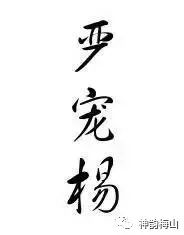 严宠杨
神韵梅山